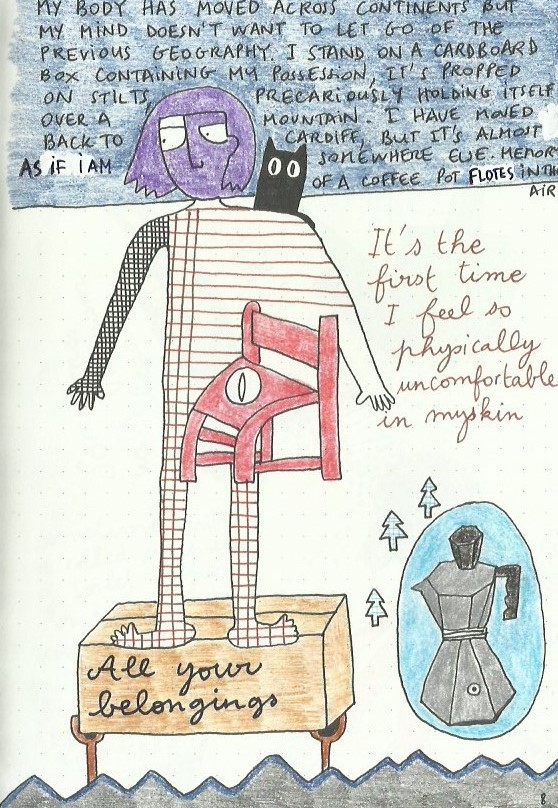 MY BODY HAS MOVED ACROSS CONTINENTS BUT
MY MIND DOESN'T WANT TO LET GO OF THE
PREVIOUS GEOGRAPHY. I STAND ON A CARDBOARD
BOX CONTAINING MY POSSESSION, IT'S PROPPED
ON STILTS PRECARIOUSLY HOLDING ITSELF
OVER A MOUNTAIN. I HAVE MOVED
BACK TO CARDIFF, BUT IT'S ALMOST
AS IF I AM SOMEWHERE ELSE. MEMOR
OF A COFFEE POT FLOTES IN TH
AIR
It's the
first time
I feel so
physically
uncomfortable
in myskin
All your
belongings